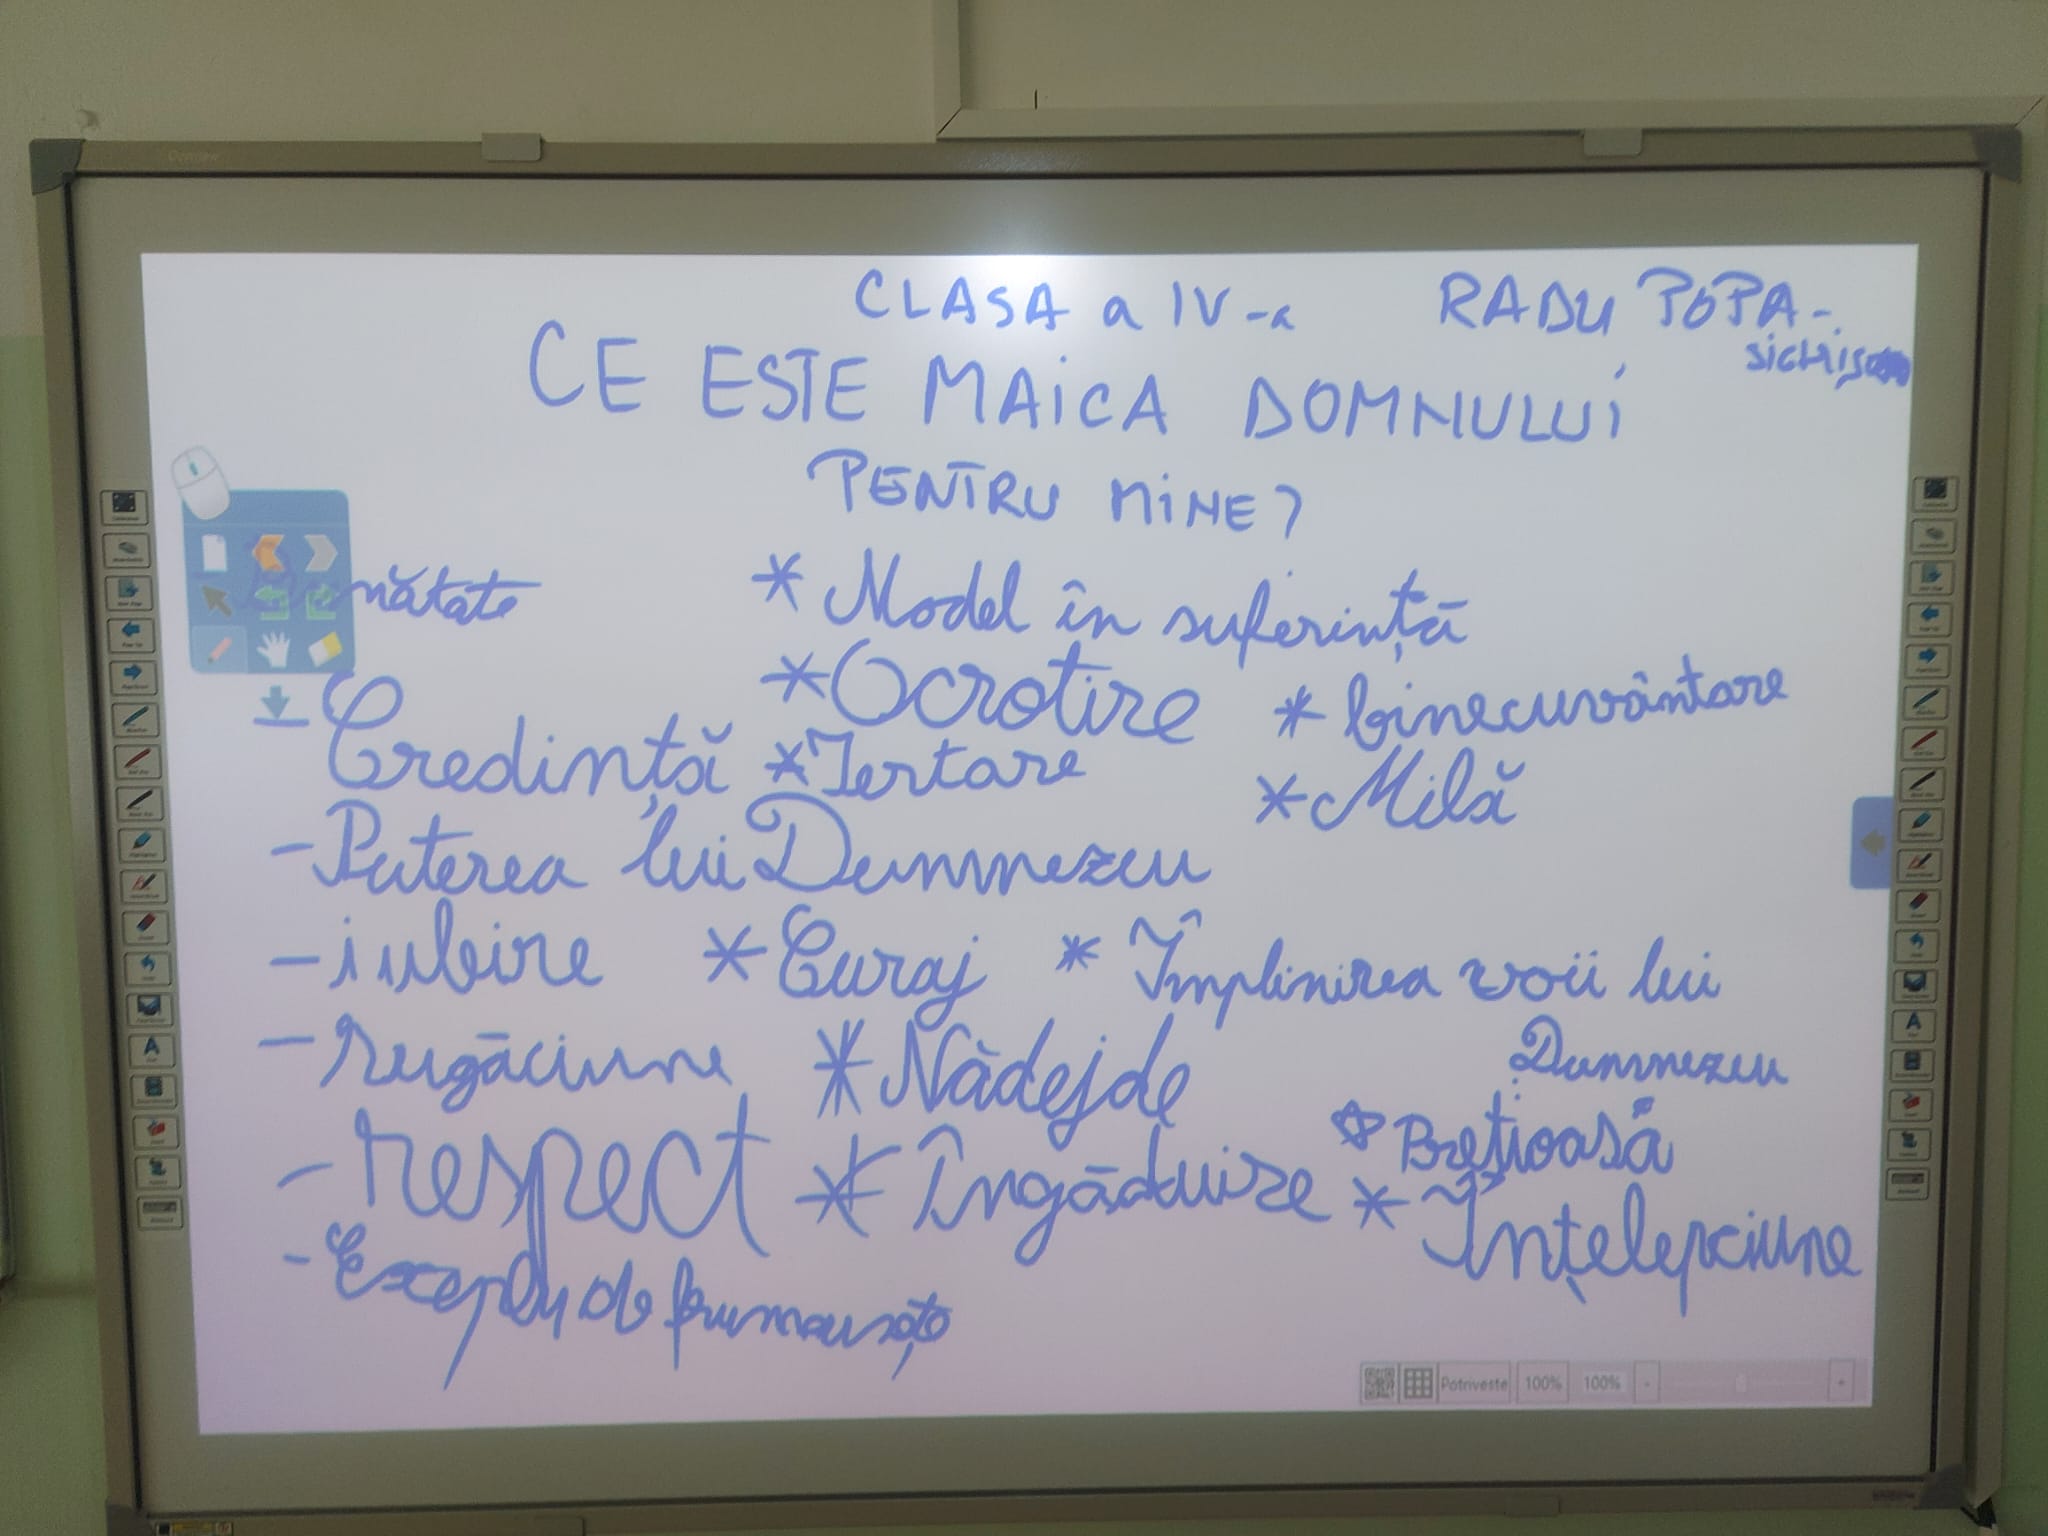 CLASA a IV-a RADU POPA-
CE ESTE MAICA DOMNULUI
PENTRU MINE?
- Bunătate
* Model în suferință
* Ocrotire * binecuvântare
- Credință * Iertare * Milă
- Puterea lui Dumnezeu
- iubire * Curaj * Împlinirea voii lui
Dumnezeu
- rugăciune * Nădejde
- respect * Îngăduire
* Înțelepciune
- Exemplu de
Potriveste 100% 100% - +